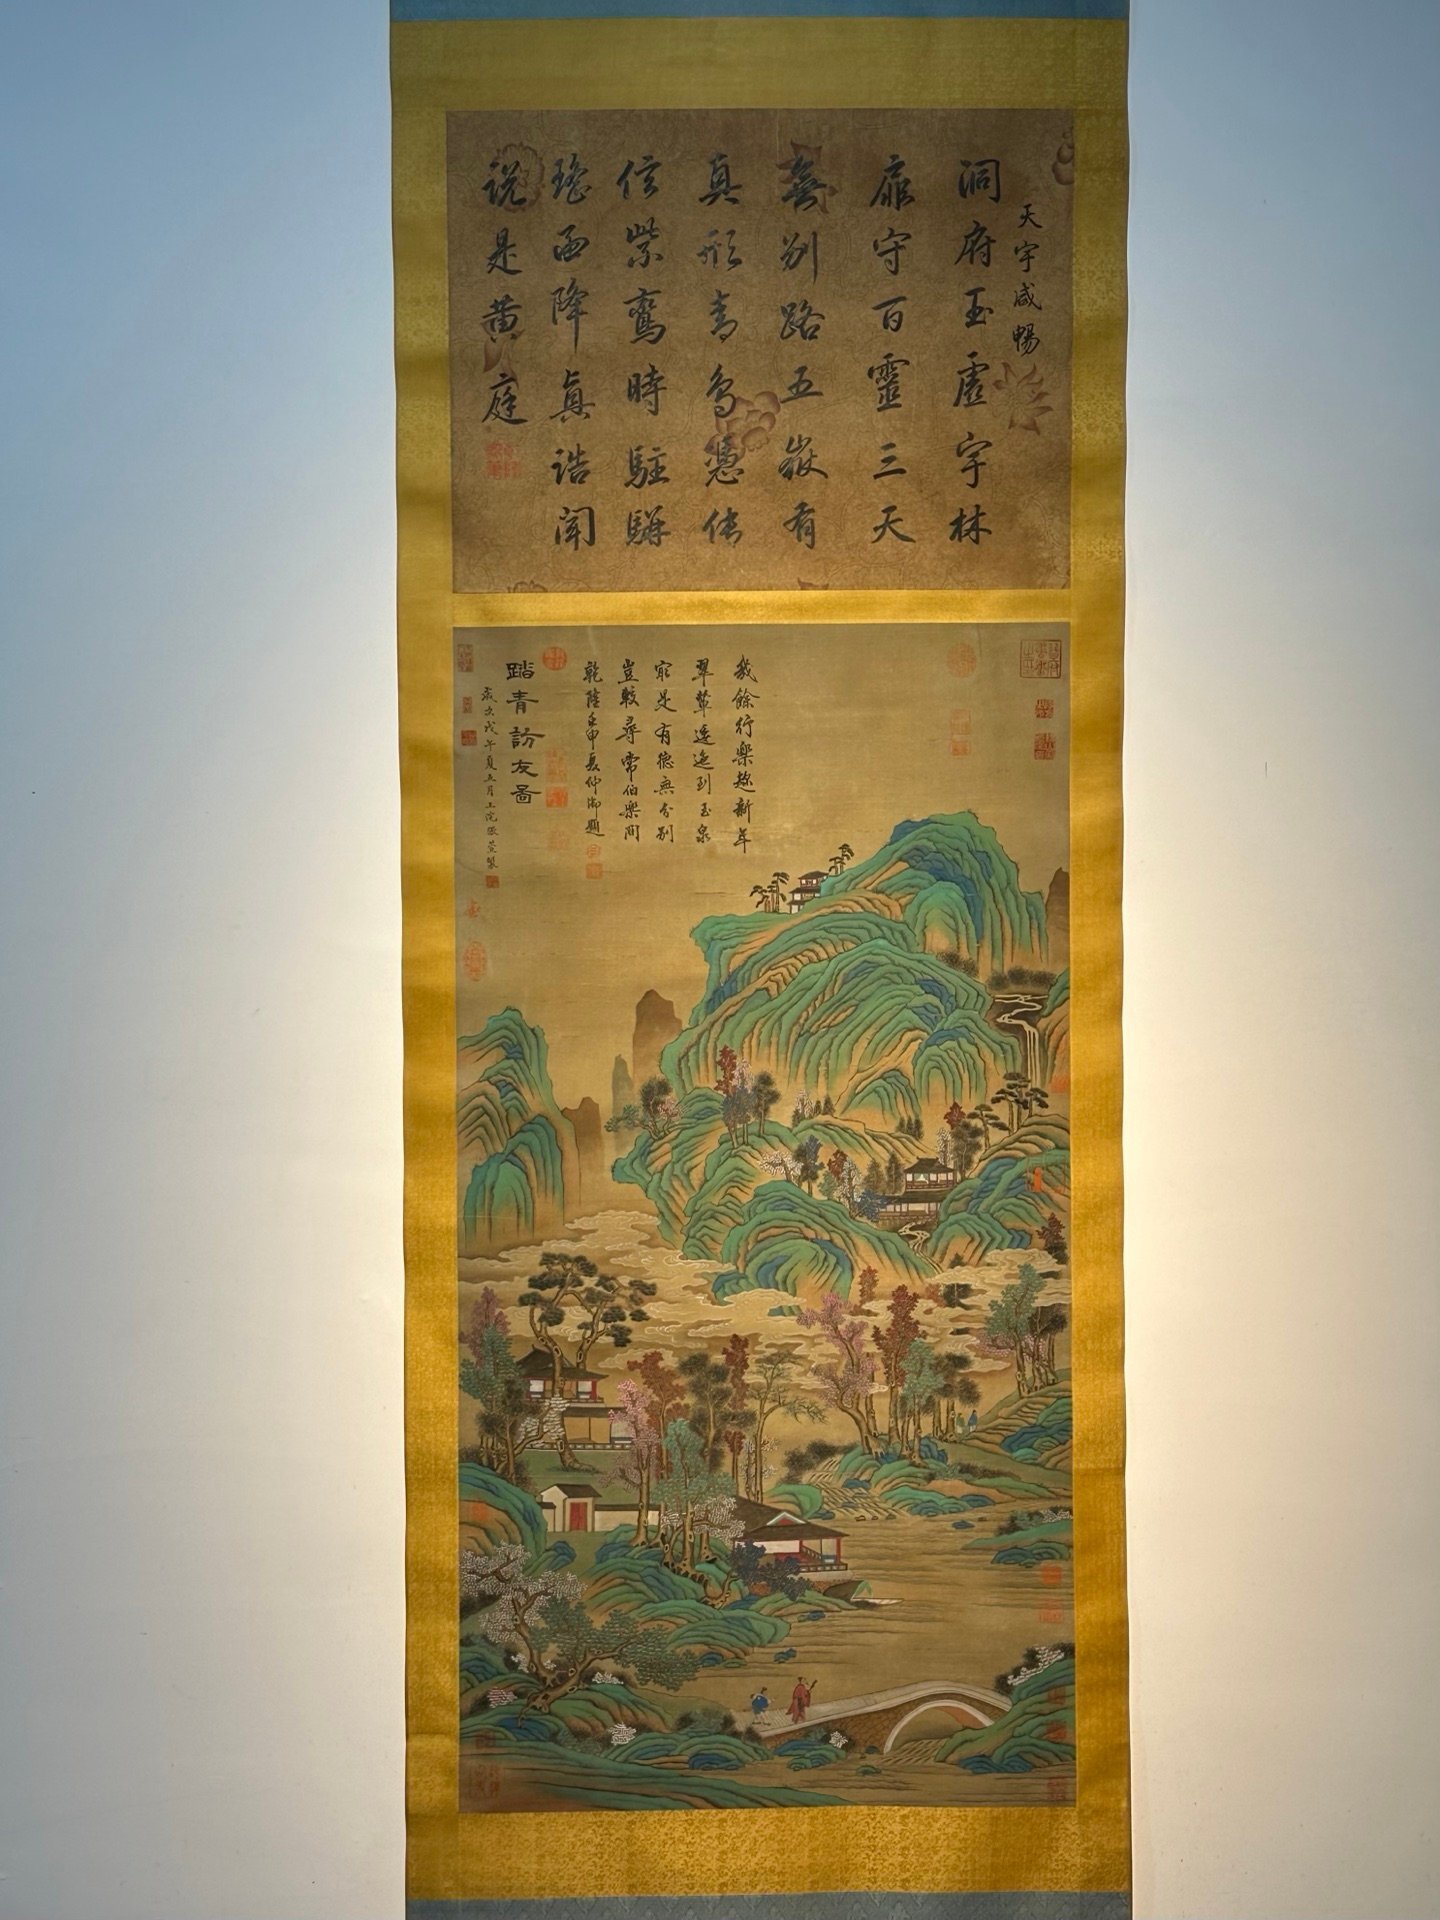 天宇咸暢
洞府玉虛宇林
扉守百靈三天
無別路五嶽有
真形青鳥憑傳
信紫鸞時駐軿
瑤函降真誥聞
說是黄庭
我餘行樂趂新年
翠輦逶迤到玉泉
有德無分别
豈較尋常伯樂間
乾隆壬申夏仲御題
踏青訪友圖
歲次戊午夏五月上浣張萱製